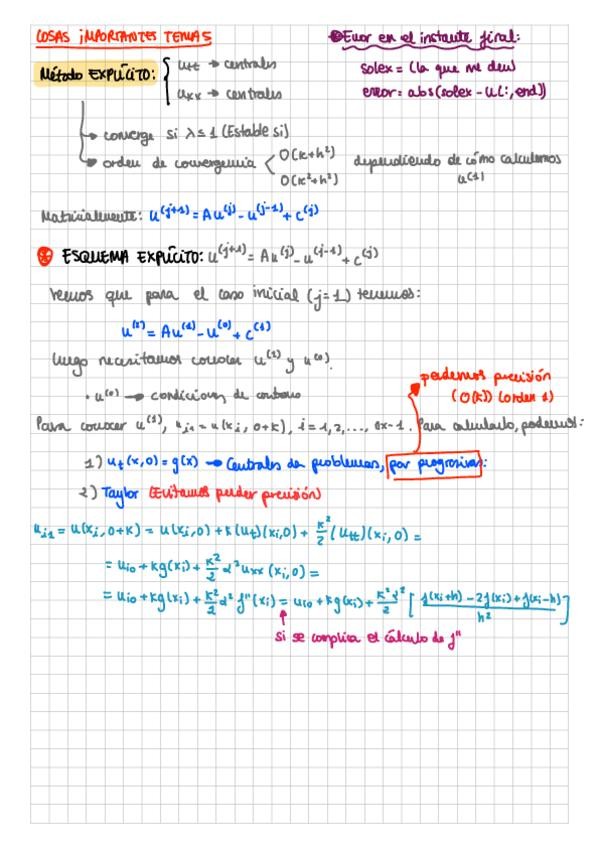 COSAS IMPORTANTES TEMA 5
• Error en el instante final:
solex = (la que me den)
error = abs(solex - u(:,end))
Método EXPLÍCITO: { u_tt → centrales
u_xx → centrales
→ converge si λ ≤ 1 (Estable si)
→ orden de convergencia < O(k+h²)
O(k²+h²)
dependiendo de cómo calculemos u^(1)
Matricialmente: u^(j+1) = Au^(j) - u^(j-1) + c^(j)
ESQUEMA EXPLÍCITO: u^(j+1) = Au^(j) - u^(j-1) + c^(j)
Vemos que para el caso inicial (j=1) tenemos:
u^(2) = Au^(1) - u^(0) + c^(1)
luego necesitamos conocer u^(1) y u^(0).
• u^(0) → condiciones de contorno
perdemos precisión
(O(k)) (orden 1)
Para conocer u^(1), u_i1 = u(x_i, 0+k), i = 1,2,..., nx-1. Para calcularlo, podemos:
1) u_t(x,0) = g(x) → Centrales da problemas, por progresivas:
2) Taylor (Evitamos perder precisión)
u_i1 = u(x_i, 0+k) = u(x_i, 0) + k(u_t)(x_i,0) + k²/2 (u_tt)(x_i,0) =
= u_i0 + kg(x_i) + k²/2 α² u_xx(x_i,0) =
= u_i0 + kg(x_i) + k²/2 α² f''(x_i) = u_i0 + kg(x_i) + k²α²/2 [ (f(x_i+h) - 2f(x_i) + f(x_i-h))/h² ]
si se complica el cálculo de f''